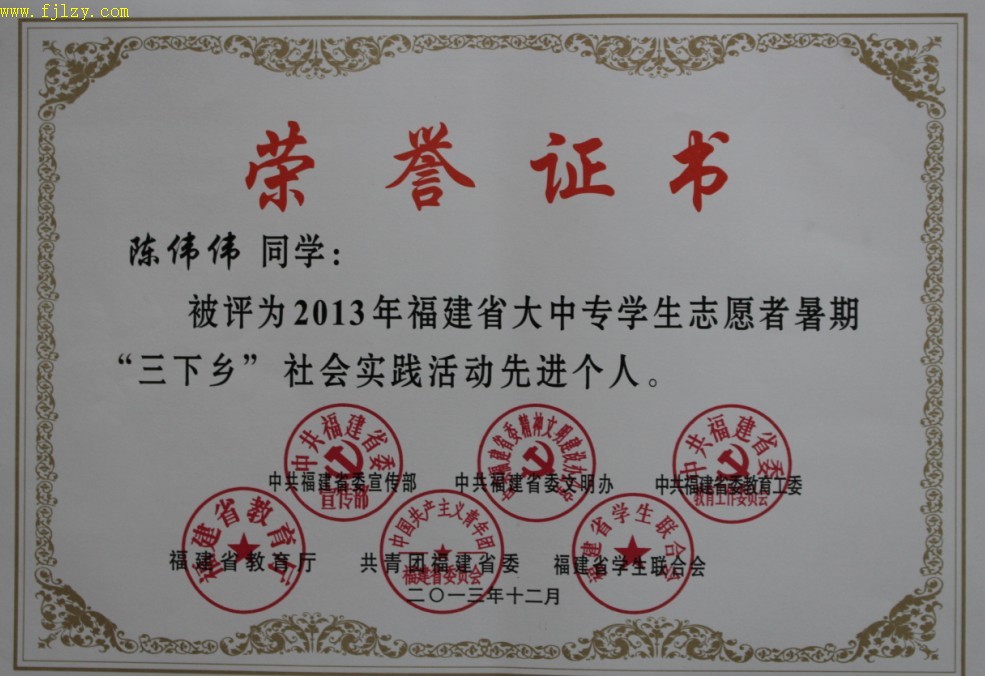 www.fjlzy.com
荣誉证书
陈伟伟 同学：
被评为2013年福建省大中专学生志愿者暑期
“三下乡”社会实践活动先进个人。
中共福建省委
宣传部
中共福建省委精神文明建设办公室
中共福建省委
教育工作委员会
中共福建省委宣传部 中共福建省委文明办 中共福建省委教育工委
福建省教育厅
中国共产主义青年团
福建省委员会
福建省学生联合会
福建省教育厅 共青团福建省委 福建省学生联合会
二〇一三年十二月